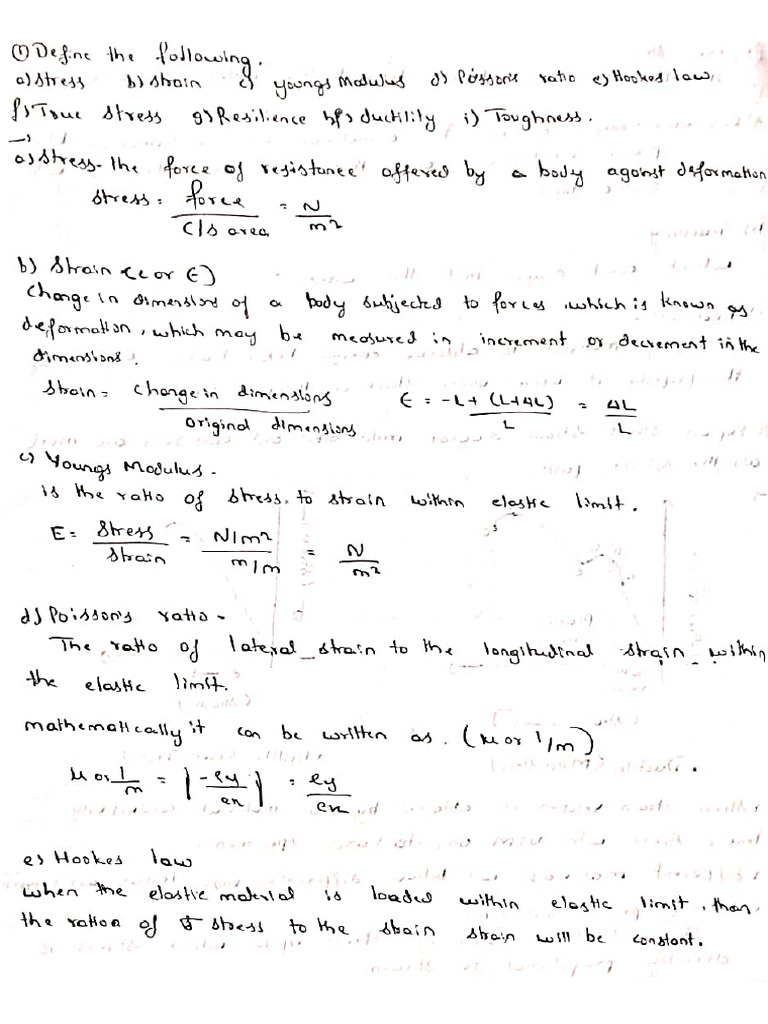 ① Define the following.
a) Stress b) Strain c) Youngs Modulus d) Poissons ratio e) Hookes law
f) True stress g) Resilience h) ductility i) Toughness.
→
a) Stress - The force of resistance offered by a body against deformation
Stress = force / C/s area = N / m²
b) Strain (e or ∈)
Change in dimensions of a body subjected to forces, which is known as
deformation, which may be measured in increment or decrement in the
dimensions.
Strain = Change in dimensions / original dimensions ∈ = -L + (L+ΔL) / L = ΔL / L
c) Youngs Modulus -
is the ratio of stress to strain within elastic limit.
E = Stress / Strain = N/m² / m/m = N / m²
d) Poisson's ratio -
The ratio of lateral strain to the longitudinal strain within
the elastic limit.
mathematically it can be written as. (μ or 1/m)
μ or 1/m = |-ey / ex| = ey / ex
e) Hookes law
when the elastic material is loaded within elastic limit, than
the ration of stress to the strain will be constant.